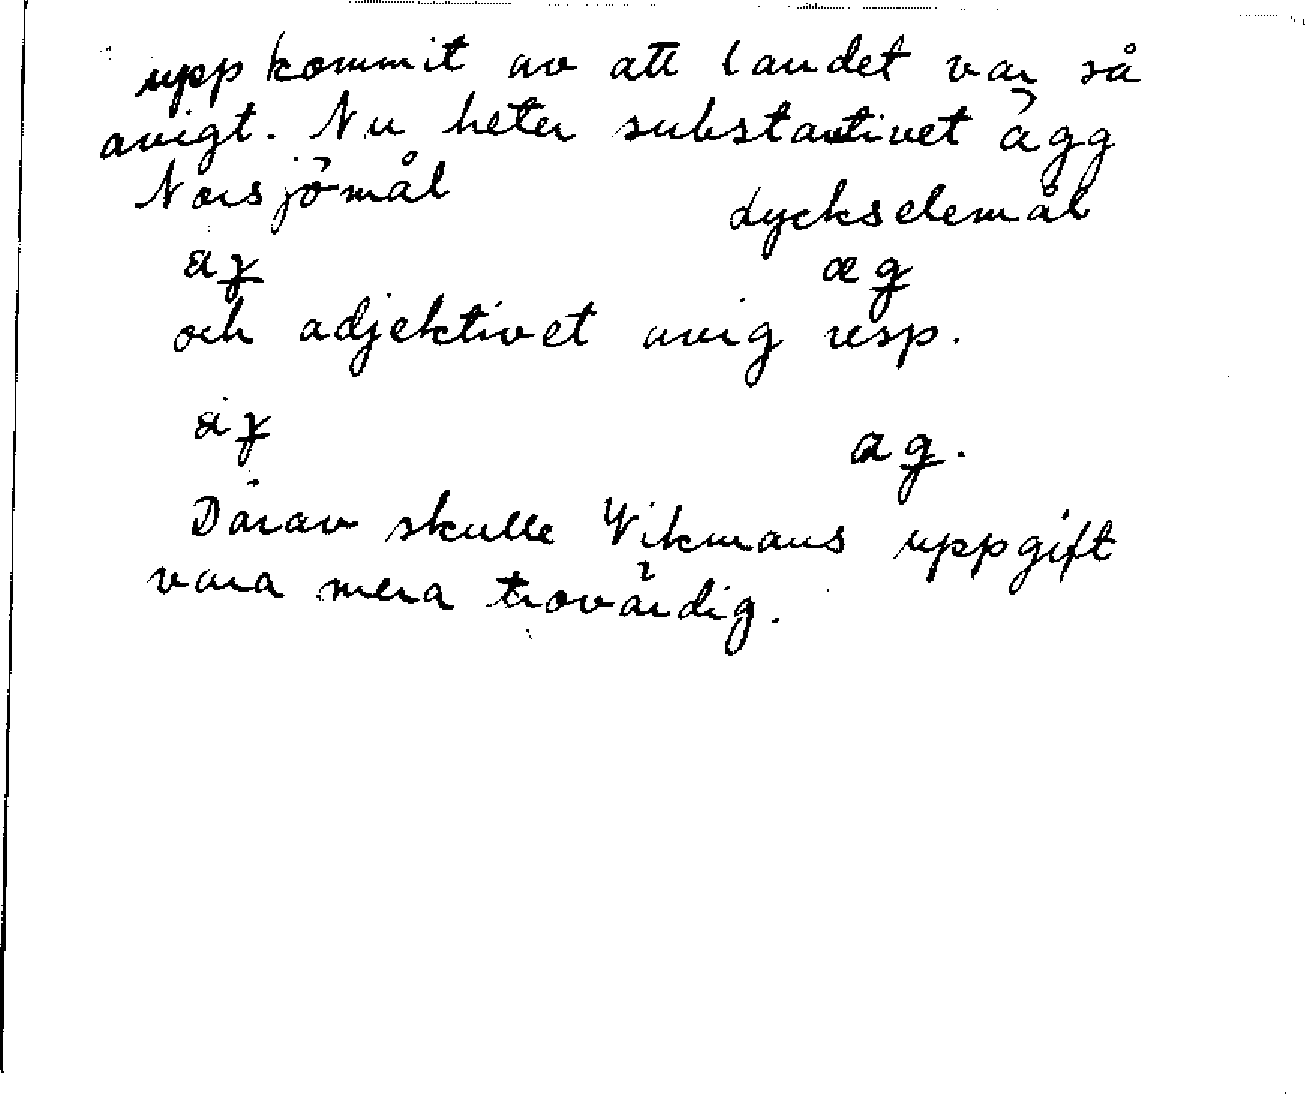 uppkommit av att landet var så
avigt. Nu heter substantivet ägg
Norsjömål
Lyckselemål
æg
och adjektivet avig resp.
ag.
Därav skulle Vikmans uppgift
vara mera trovärdig.